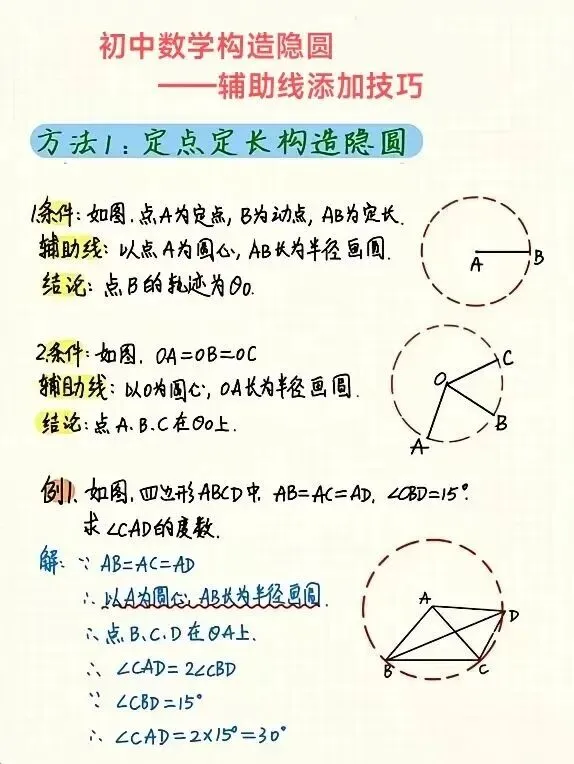 初中数学构造隐圆
——辅助线添加技巧
方法1：定点定长构造隐圆
1.条件：如图.点A为定点,B为动点,AB为定长.
辅助线：以点A为圆心,AB长为半径画圆.
结论：点B的轨迹为⊙O.
A B
2.条件：如图，OA=OB=OC
辅助线：以O为圆心,OA长为半径画圆.
结论：点A.B.C在⊙O上.
O C
B
A
例1、如图,四边形ABCD中，AB=AC=AD，∠CBD=15°.
求∠CAD的度数.
解：∵ AB=AC=AD
∴以A为圆心,AB长为半径画圆.
∴点B.C.D在⊙A上.
∴ ∠CAD=2∠CBD
∵ ∠CBD=15°
∴ ∠CAD=2×15°=30°
A
D
B C